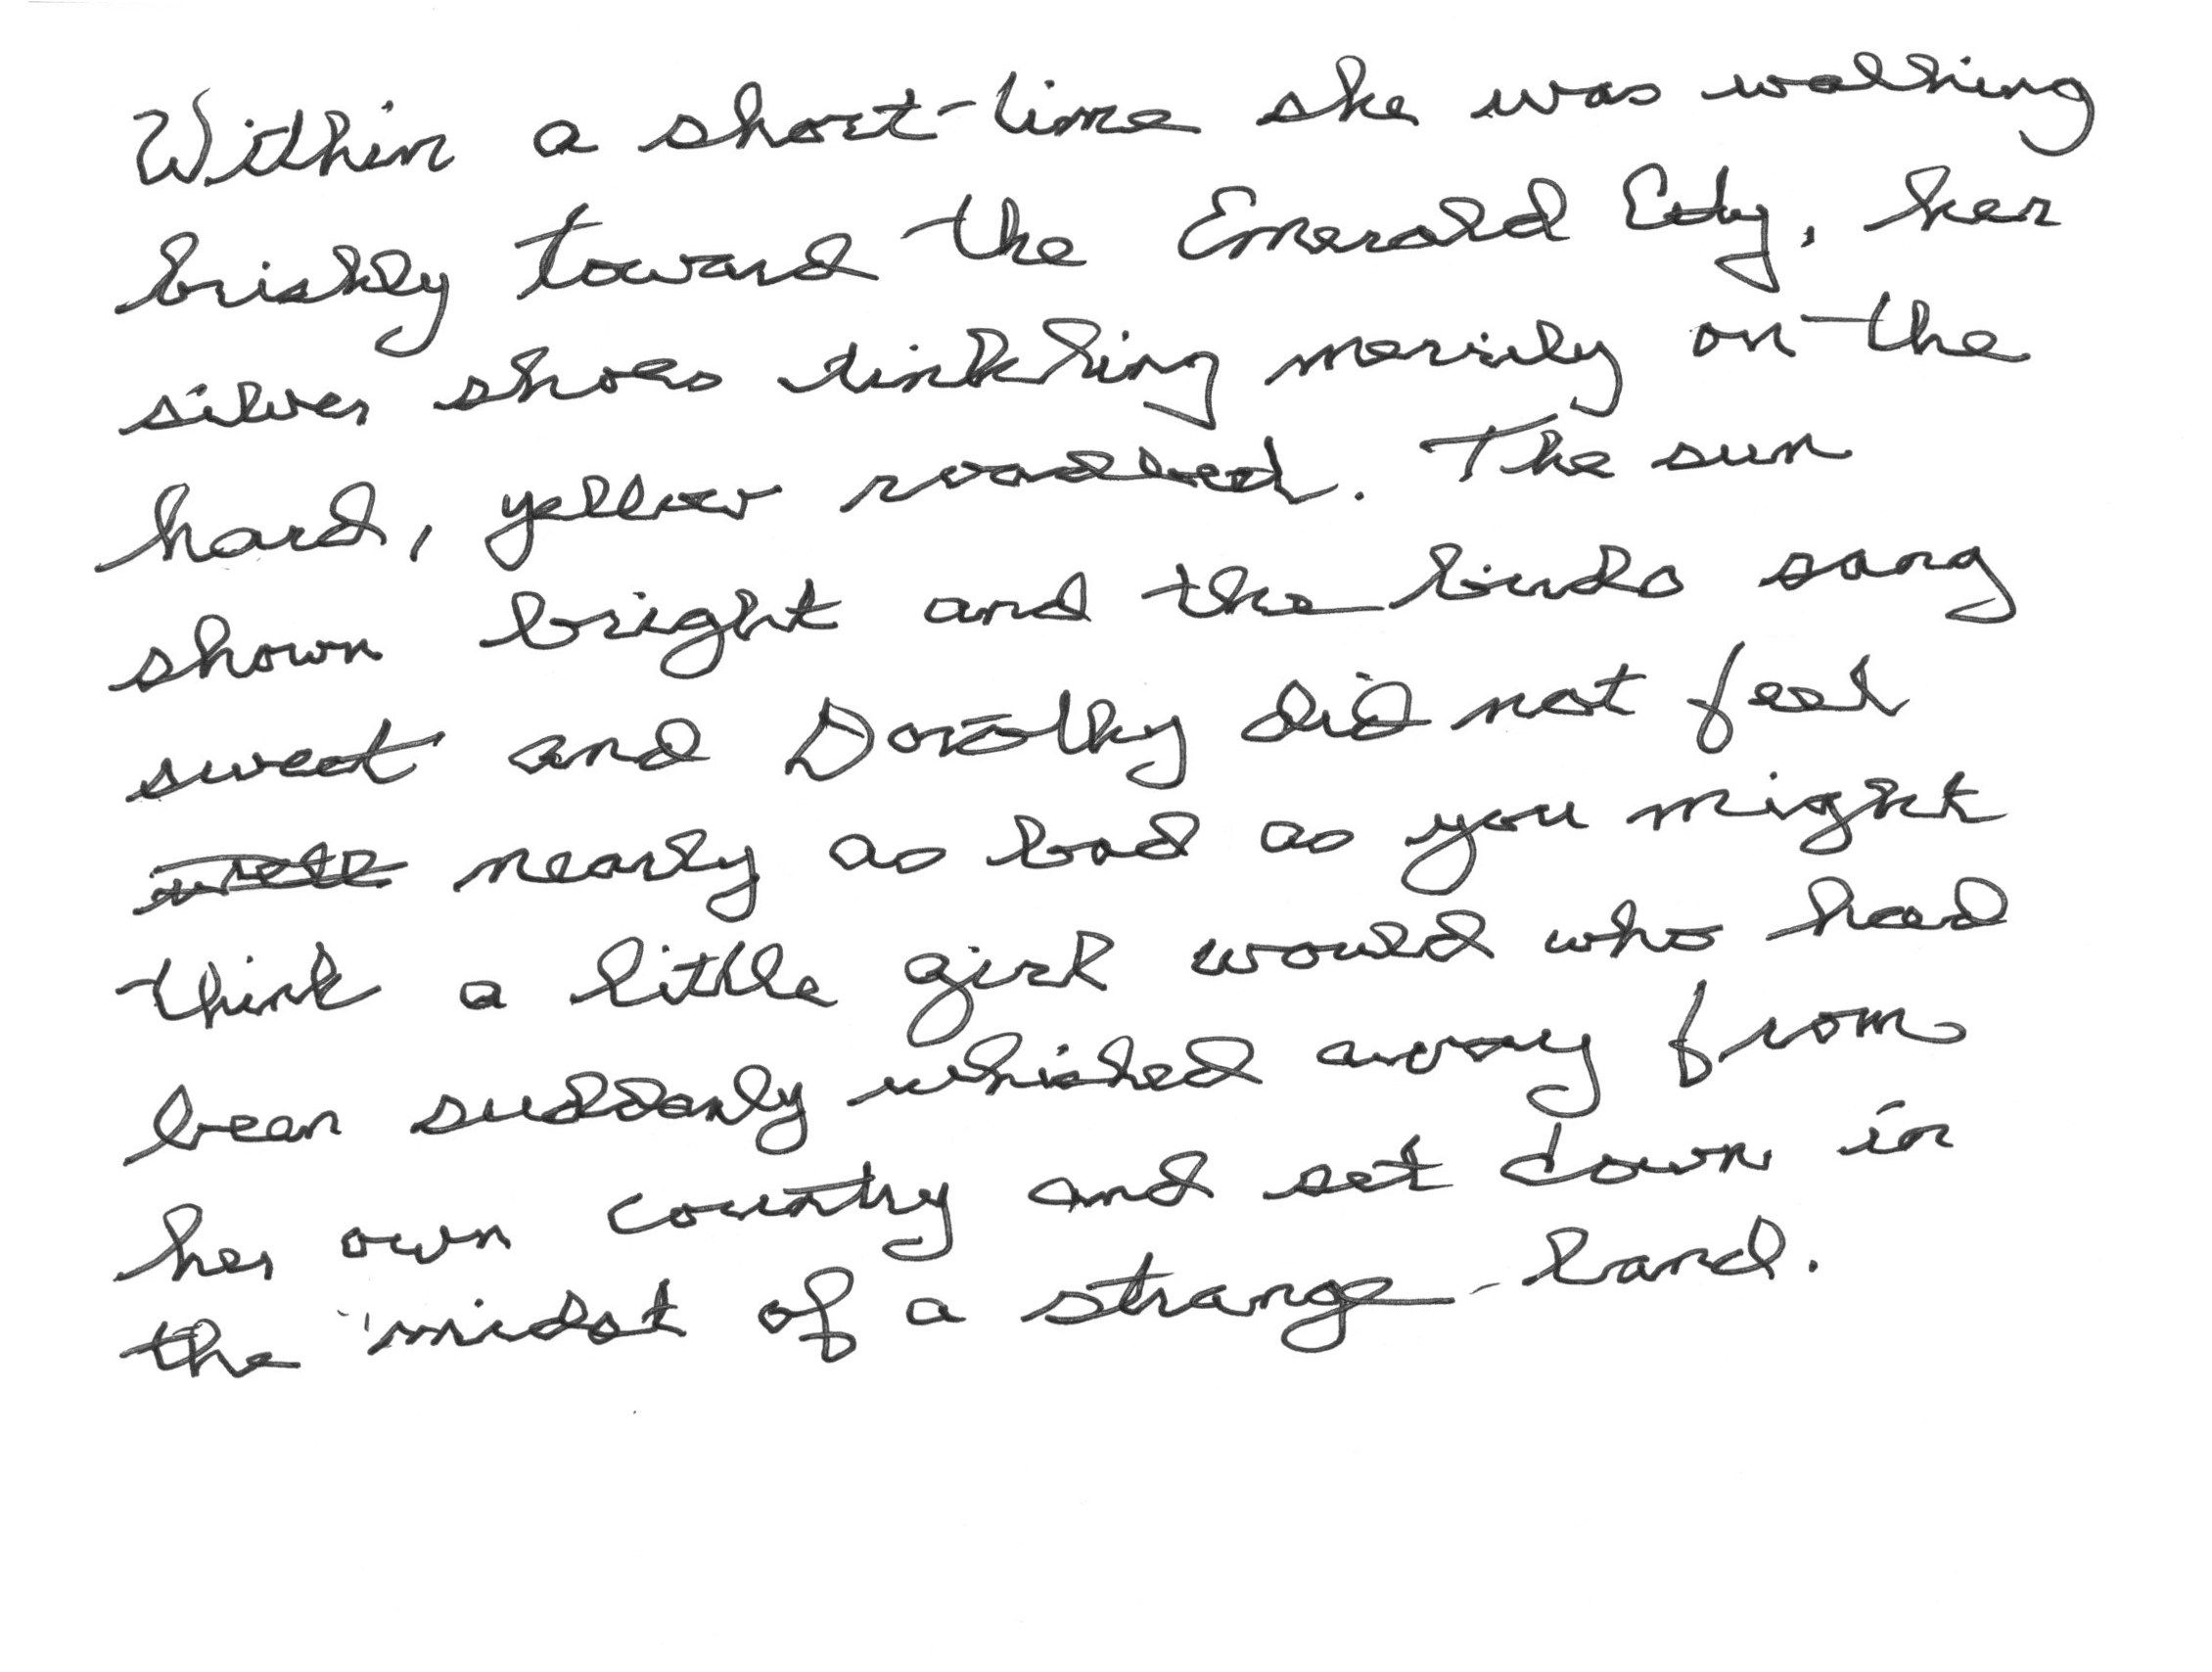 Within a short time she was walking
briskly toward the Emerald City, her
silver shoes tinkling merrily on the
hard, yellow roadbed. The sun
shown bright and the birds sang
sweet and Dorothy did not feel
nearly as bad as you might
think a little girl would who had
been suddenly whisked away from
her own country and set down in
the midst of a strange land.